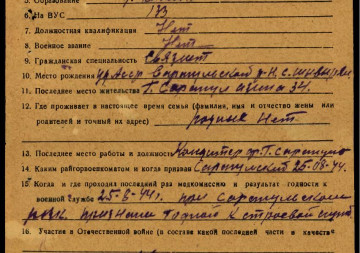 5. Образование
6. На ВУС 133
7. Должностная квалификация Нет
8. Военное звание Нет
9. Гражданская специальность Связист
10. Место рождения Сарапульской р-н. с.
11. Последнее место жительства г. Сарапул 34.
12. Где проживает в настоящее время семья (фамилия, имя и отчество жены или
родителей и точный их адрес) родных Нет.
13. Последнее место работы и должность г. Сарапуло
14. Каким райгорвоенкоматом и когда призван Сарапульский 25-08-44.
15. Когда и где проходил последний раз медкомиссию и результат годности к
военной службе 25-8-44г. при Сарапульском
рвк. признан годной к строевой служб
16. Участие в Отечественной войне (в составе какой последней части и качестве